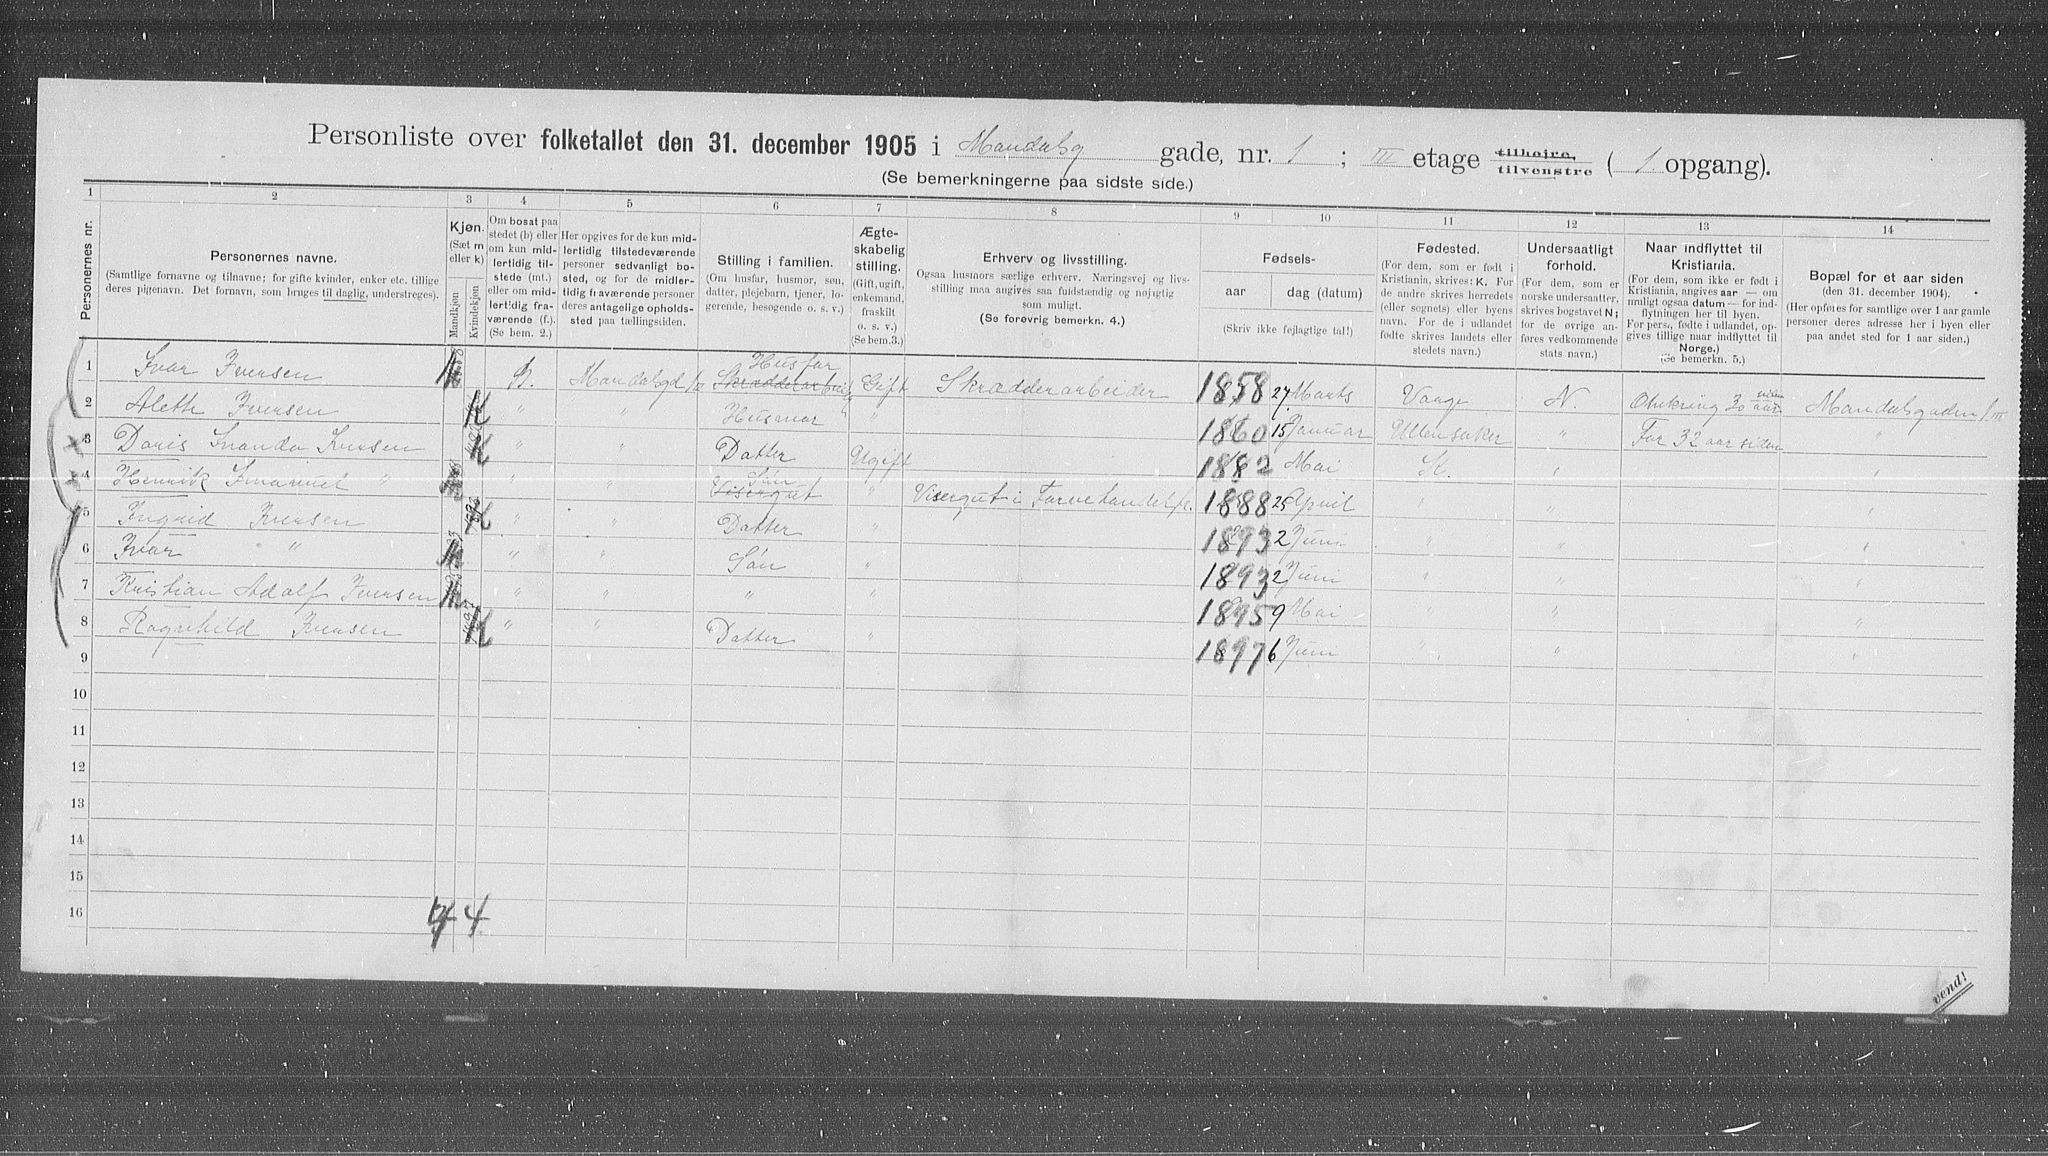 Personliste over folketallet den 31. december 1905 i Mandalsg gade, nr. 1 ; III etage tilhøire, tilvenstre ( 1 opgang).
(Se bemerkningerne paa sidste side.)
1 2 3 4 5 6 7 8 9 10 11 12 13 14
Personernes nr.
Personernes navne.
(Samtlige fornavne og tilnavne; for gifte kvinder, enker etc. tillige
deres pigenavn. Det fornavn, som bruges til daglig, understreges).
Kjøn.
(Sæt m
eller k)
Mandkjøn
Kvindekjøn
Om bosat paa
stedet (b) eller
om kun mid-
lertidig til-
stede (mt.)
eller om mid-
lertidig fra-
værende (f.).
(Se bem. 2.)
Her opgives for de kun mid-
lertidig tilstedeværende
personer sedvanligt bo-
sted, og for de midler-
tidig fraværende personer
deres antagelige opholds-
sted paa tællingsiden.
Stilling i familien.
(Om husfar, husmor, søn,
datter, plejebarn, tjener, lo-
gerende, besøgende o. s. v.)
Ægte-
skabelig
stilling.
(Gift, ugift,
enkemand,
fraskilt
o. s. v.)
(Se bem.3.)
Erhverv og livsstilling.
Ogsaa husmors særlige erhverv. Næringsvej og livs-
stilling maa angives saa fuldstændig og nøjagtig
som muligt.
(Se forøvrig bemerkn. 4.)
Fødsels-
aar dag (datum)
(Skriv ikke fejlagtige tal!)
Fødested.
(For dem, som er født i
Kristiania, skrives: K. For
de andre skrives herredets
(eller sognets) eller byens
navn. For de i udlandet
fødte skrives landets eller
stedets navn.)
Undersaatligt
forhold.
(For dem, som er
norske undersaatter,
skrives bogstavet N;
for de øvrige an-
føres vedkommende
stats navn.)
Naar indflyttet til
Kristiania.
(For dem, som ikke er født i
Kristiania, angives aar — om
muligt ogsaa datum — for ind-
flytningen her til byen.
For pers., fødte i udlandet, op-
gives tillige naar indflyttet til
Norge.)
(Se bemerkn. 5.)
Bopæl for et aar siden
(den 31. december 1904).
(Her opføres for samtlige over 1 aar gamle
personer deres adresse her i byen eller
paa andet sted for 1 aar siden.)
1 Ivar Iversen m B. Mandalsgd Husfar Skrædderarbei Gift Skrædderarbeider 1858 27 Marts Vaage N. Omkring 30 aar siden Mandalsgaden 1 III
2 Aleth Iversen K " " Husmor " 1860 15 Januar Ullensaker " For 32 aar siden "
3 Doris Iversen K " " Datter Ugift 1882 Mai K. " "
4 Henrik " m " " Søn Visergut " Visergut i Farvehandel 1888 25 April " " "
5 Ingrid Iversen K " " Datter " 1893 2 Juni " " "
6 Ivar " m " " Søn " 1893 2 Juni " " "
7 Kristian Adolf Iversen m " " " " 1895 9 Mai " " "
8 Ragnhild Iversen K " " Datter " 1897 6 Juni " " "
9
10
11
12
13
14
15
16 4 4
vend!